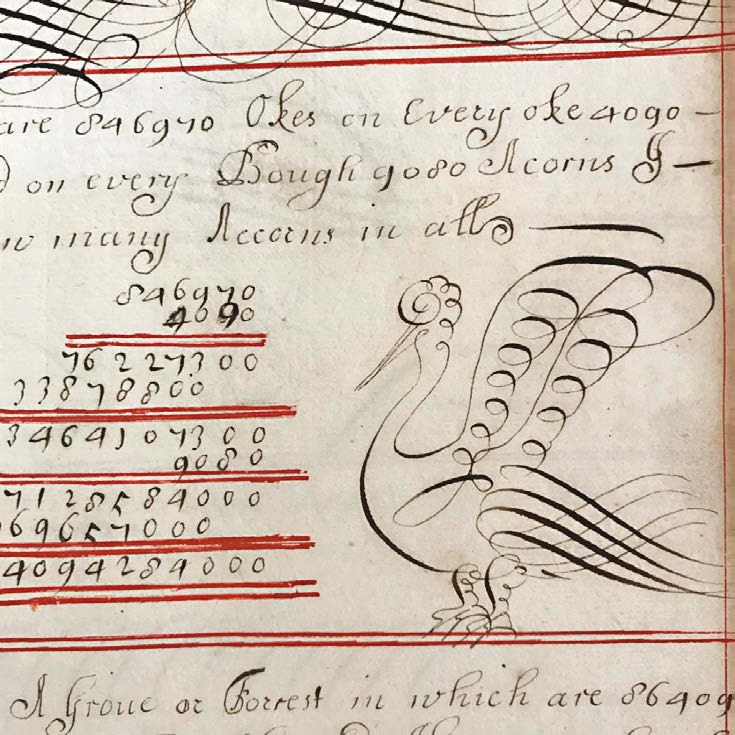 are 846970 Okes on Every oke 4090 –
d on every Bough 9080 Acorns
w many Accorns in all
846970
4090
76227300
33878800
3464107300
9080
7128584000
69657000
4094284000
A Groue or Forrest in which are 86409